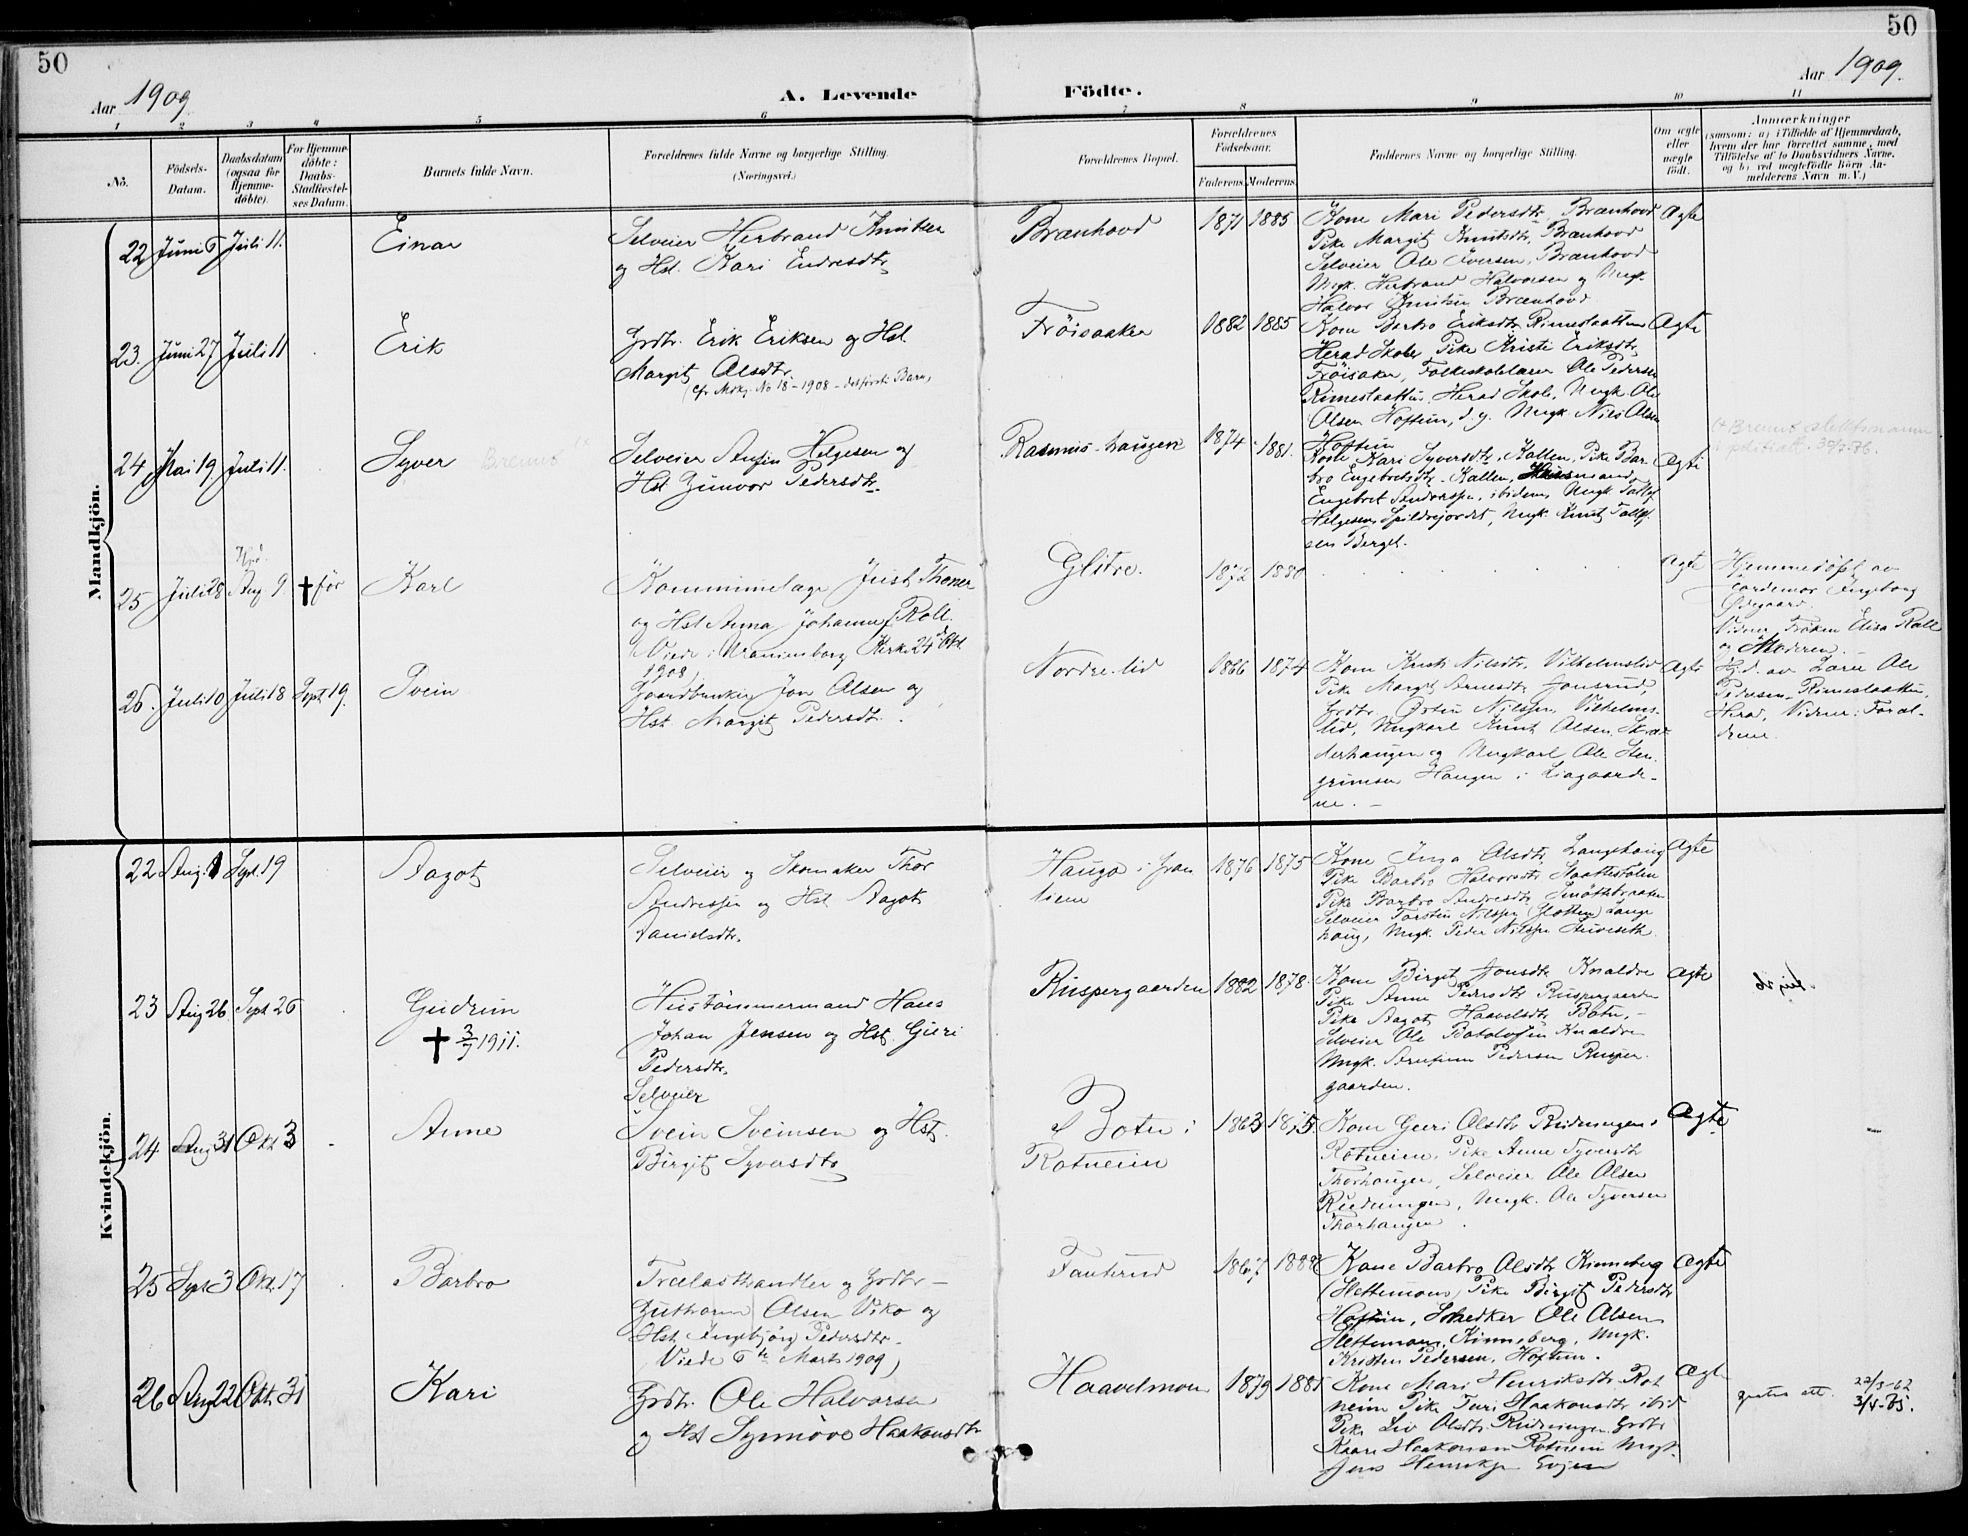 50
50
Aar 1909
A. Levende Födte.
Aar 1909.
1 2 3 4 5 6 7 8 9 10 11
No.
Födsels-
Datum.
Daabsdatum
(ogsaa for
Hjemme-
døbte).
For Hjemme-
døbte:
Daabs-
Stadfæstel-
ses Datum.
Barnets fulde Navn.
Forældrenes fulde Navne og borgerlige Stilling.
(Næringsvei.)
Forældrenes Bopæl.
Forældrenes
Fødselsaar.
Faderens. Moderens.
Faddernes Navne og borgerlige Stilling.
Om ægte
eller
uægte
født.
Anmærkninger
(saasom: a) i Tilfælde af Hjemmedaab,
hvem der har forrettet samme, med
Tilføielse af to Daabsvidners Navne,
og b) ved uægtefødte Børn An-
melderens Navn m. V.)
Mandkjön.
22 Juni 6 Juli 11. Einar
Selveier Herbrand Knutsen
og Hst. Kari Endresdtr.
Brænhovd 1871 1885
Kone Mari Pedersdtr. Brænhovd
Pike Margit Knutsdtr. Brænhovd
Selveier Ole Iversen, Brænhovd
Ungk. Herbrand Halvorsen og Ungk.
Halvor Knutsen Brænhovd
Ægte
23. Juni 27 Juli 11 Erik
Grdbr. Erik Eriksen og Hst.
Margit Olsdtr.
(cfr Mdkj. No 18 - 1908 - det første Barn)
Fröisaaker 1882 1885
Kone Barbro Eriksdtr. Rimeslaatten
Herad Skole, Pike Kristi Eriksdtr.
Fröisaker, Folkeskolelærer Ole Pedersen
Rimeslaatten, Herad Skole, Ungk. Ole
Olsen Hoftun, d.y. Ungk. Nils Olsen
Hoftun
Ægte
24 Mai 19. Juli 11. Syver
Selveier Helgesen og
Hst. Gunvor Pedersdtr.
Rasmus-haugen 1874 1881.
Kone Kari Syversdtr. Kallen, Pike Bar-
bro Engebretsdtr. Kallen,
Engebret Andreassen, ibidem, Ungk.
Helgesen, Ungk. Knut
sen Berget.
Ægte
25 Juli 28 Hjd. Aug 9. † för Karl
Kommunelæge Just Thoner
og Hst Anna Johanne Roll.
Viede i Uranienborg Kirke 24 Okt.
1908)
Glitre. 1872 1880
Ægte
Hjemmedöbt av
Jordemor Ingeborg
Ødegaard.
Vidner Frøken Elisa Roll
og Moderen.
26. Juli 10 Juli 18 Sept 19. Svein
Gaardbruker Jon Olsen og
Hst. Margit Pedersdtr.
Nordre-lid 1866 1874
Kone Kristi Nilsdtr. Vilhelmslid
Pike Margit Arnesdtr. Jonsrud,
Grdbr. Østen Nilssen, Vilhelms-
lid, Ungkarl Knut Olsen,
derhaugen og Ungkarl Ole Sten-
grimsen Haugen i Liagaarde-
ne. -
Ægte
Hjd. av Lærer Ole
Pedersen Rimeslaatten,
Herad, Vidner: Foræl-
drene.
Kvindekjön.
22 Aug. 1 Sept. 19 Aagot
Selveier og Skomaker Thor
Andreassen og Hst. Aagot
Danielsdtr.
Haugo i 1876 1875
Kone Inga Olsdtr. Langehaug
Pike Barbro Halvorsdtr. Slaattestölen
Pike Barbro Andresdtr.
Selveier Torsten Nilssen (Glotten) Lange
haug, Ungk. Peder Nilssen
Ægte
23 Aug 26 Sept 26 Gudrun
† 3/7 1911.
Hustömmermand Hans
Johan Jensen og Hst. Guri
Pedersdtr.
Ruspergaarden 1882 1878.
Kone Birgit Jonsdtr. Knaldre
Pike Anne Pedersdtr Ruspergaarden
Pike Aagot Haavelsdtr. Botn, -
Selveier Ole Botolvsen Knaldre
Ungk. Pedersen Rusper-
gaarden.
Ægte
24 Aug 31 Okt 3 Anne
Selveier
Svein Sveinsen og Hst.
Birgit Syversdtr
Botn i
Rotneim 1863
Kone Guri Olsdtr Rudningen i
Rotneim, Pike Anne Syversdtr
Thorhaugen, Selveier Ole Olsen
Rudningen, Ungk. Ole Syversen
Thorhaugen.
Ægte
25 Sept 3 Okt. 17 Barbro
Trælasthandler og Grdbr -
Guttorm Olsen Viko og
Hst. Ingebjörg Pedersdtr.
(Viede 6te Marts 1909)
Fauterud 1867
Kone Barbro Olsdtr Kinneberg
(Slettemoen) Pike Birgit Pedersdtr
Hoftun, Snedker Ole Olsen
Slettemoen, Kinneberg, Ungk.
Kristen Pedersen, Hoftun.
Ægte
26 Aug 22 Okt. 31 Kari
Grdbr. Ole Halvorsen
og Hst Synnöve Haakonsdtr
Haavelmoen 1879 1881
Kone Mari Henriksdtr. Rot
neim Pike Turi Haakonsdtr ibid
Pike Liv Olsdtr. Rudningen Grdbr
Kaare Haakonsen Rotneim Ungk.
Jens Henriksen
Ægte